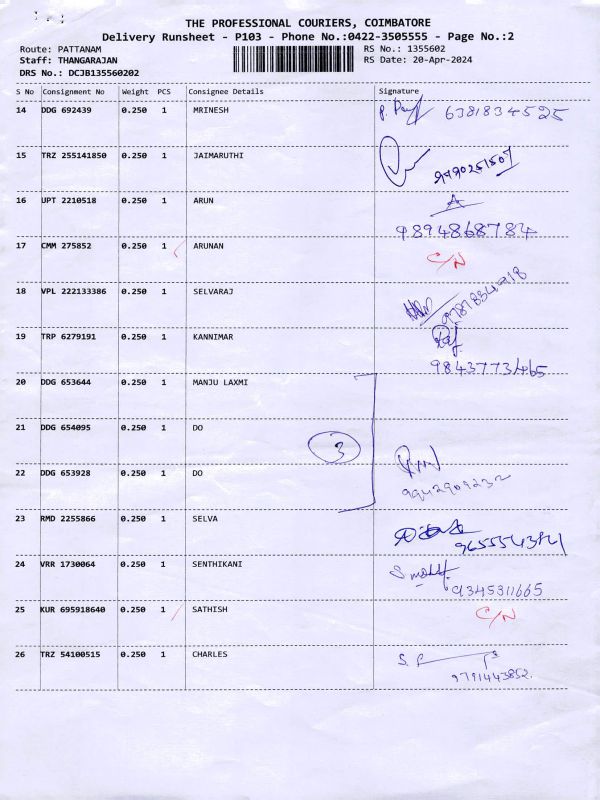 THE PROFESSIONAL COURIERS, COIMBATORE
Delivery Runsheet - P103 - Phone No.:0422-3505555 - Page No.:2
Route: PATTANAM RS No.: 1355602
Staff: THANGARAJAN RS Date: 20-Apr-2024
DRS No.: DCJB135560202
S No Consignment No Weight PCS Consignee Details Signature
14 DDG 692439 0.250 1 MRINESH 6381834525
15 TRZ 255141850 0.250 1 JAIMARUTHI
16 UPT 2210518 0.250 1 ARUN A
9894868784
17 CMM 275852 0.250 1 ARUNAN C/N
18 VPL 222133386 0.250 1 SELVARAJ
19 TRP 6279191 0.250 1 KANNIMAR
9843773465
20 DDG 653644 0.250 1 MANJU LAXMI
21 DDG 654095 0.250 1 DO 3
22 DDG 653928 0.250 1 DO
9942909232
23 RMD 2255866 0.250 1 SELVA
24 VRR 1730064 0.250 1 SENTHIKANI
9345311665
25 KUR 695918640 0.250 1 SATHISH C/N
26 TRZ 54100515 0.250 1 CHARLES
9791443852.